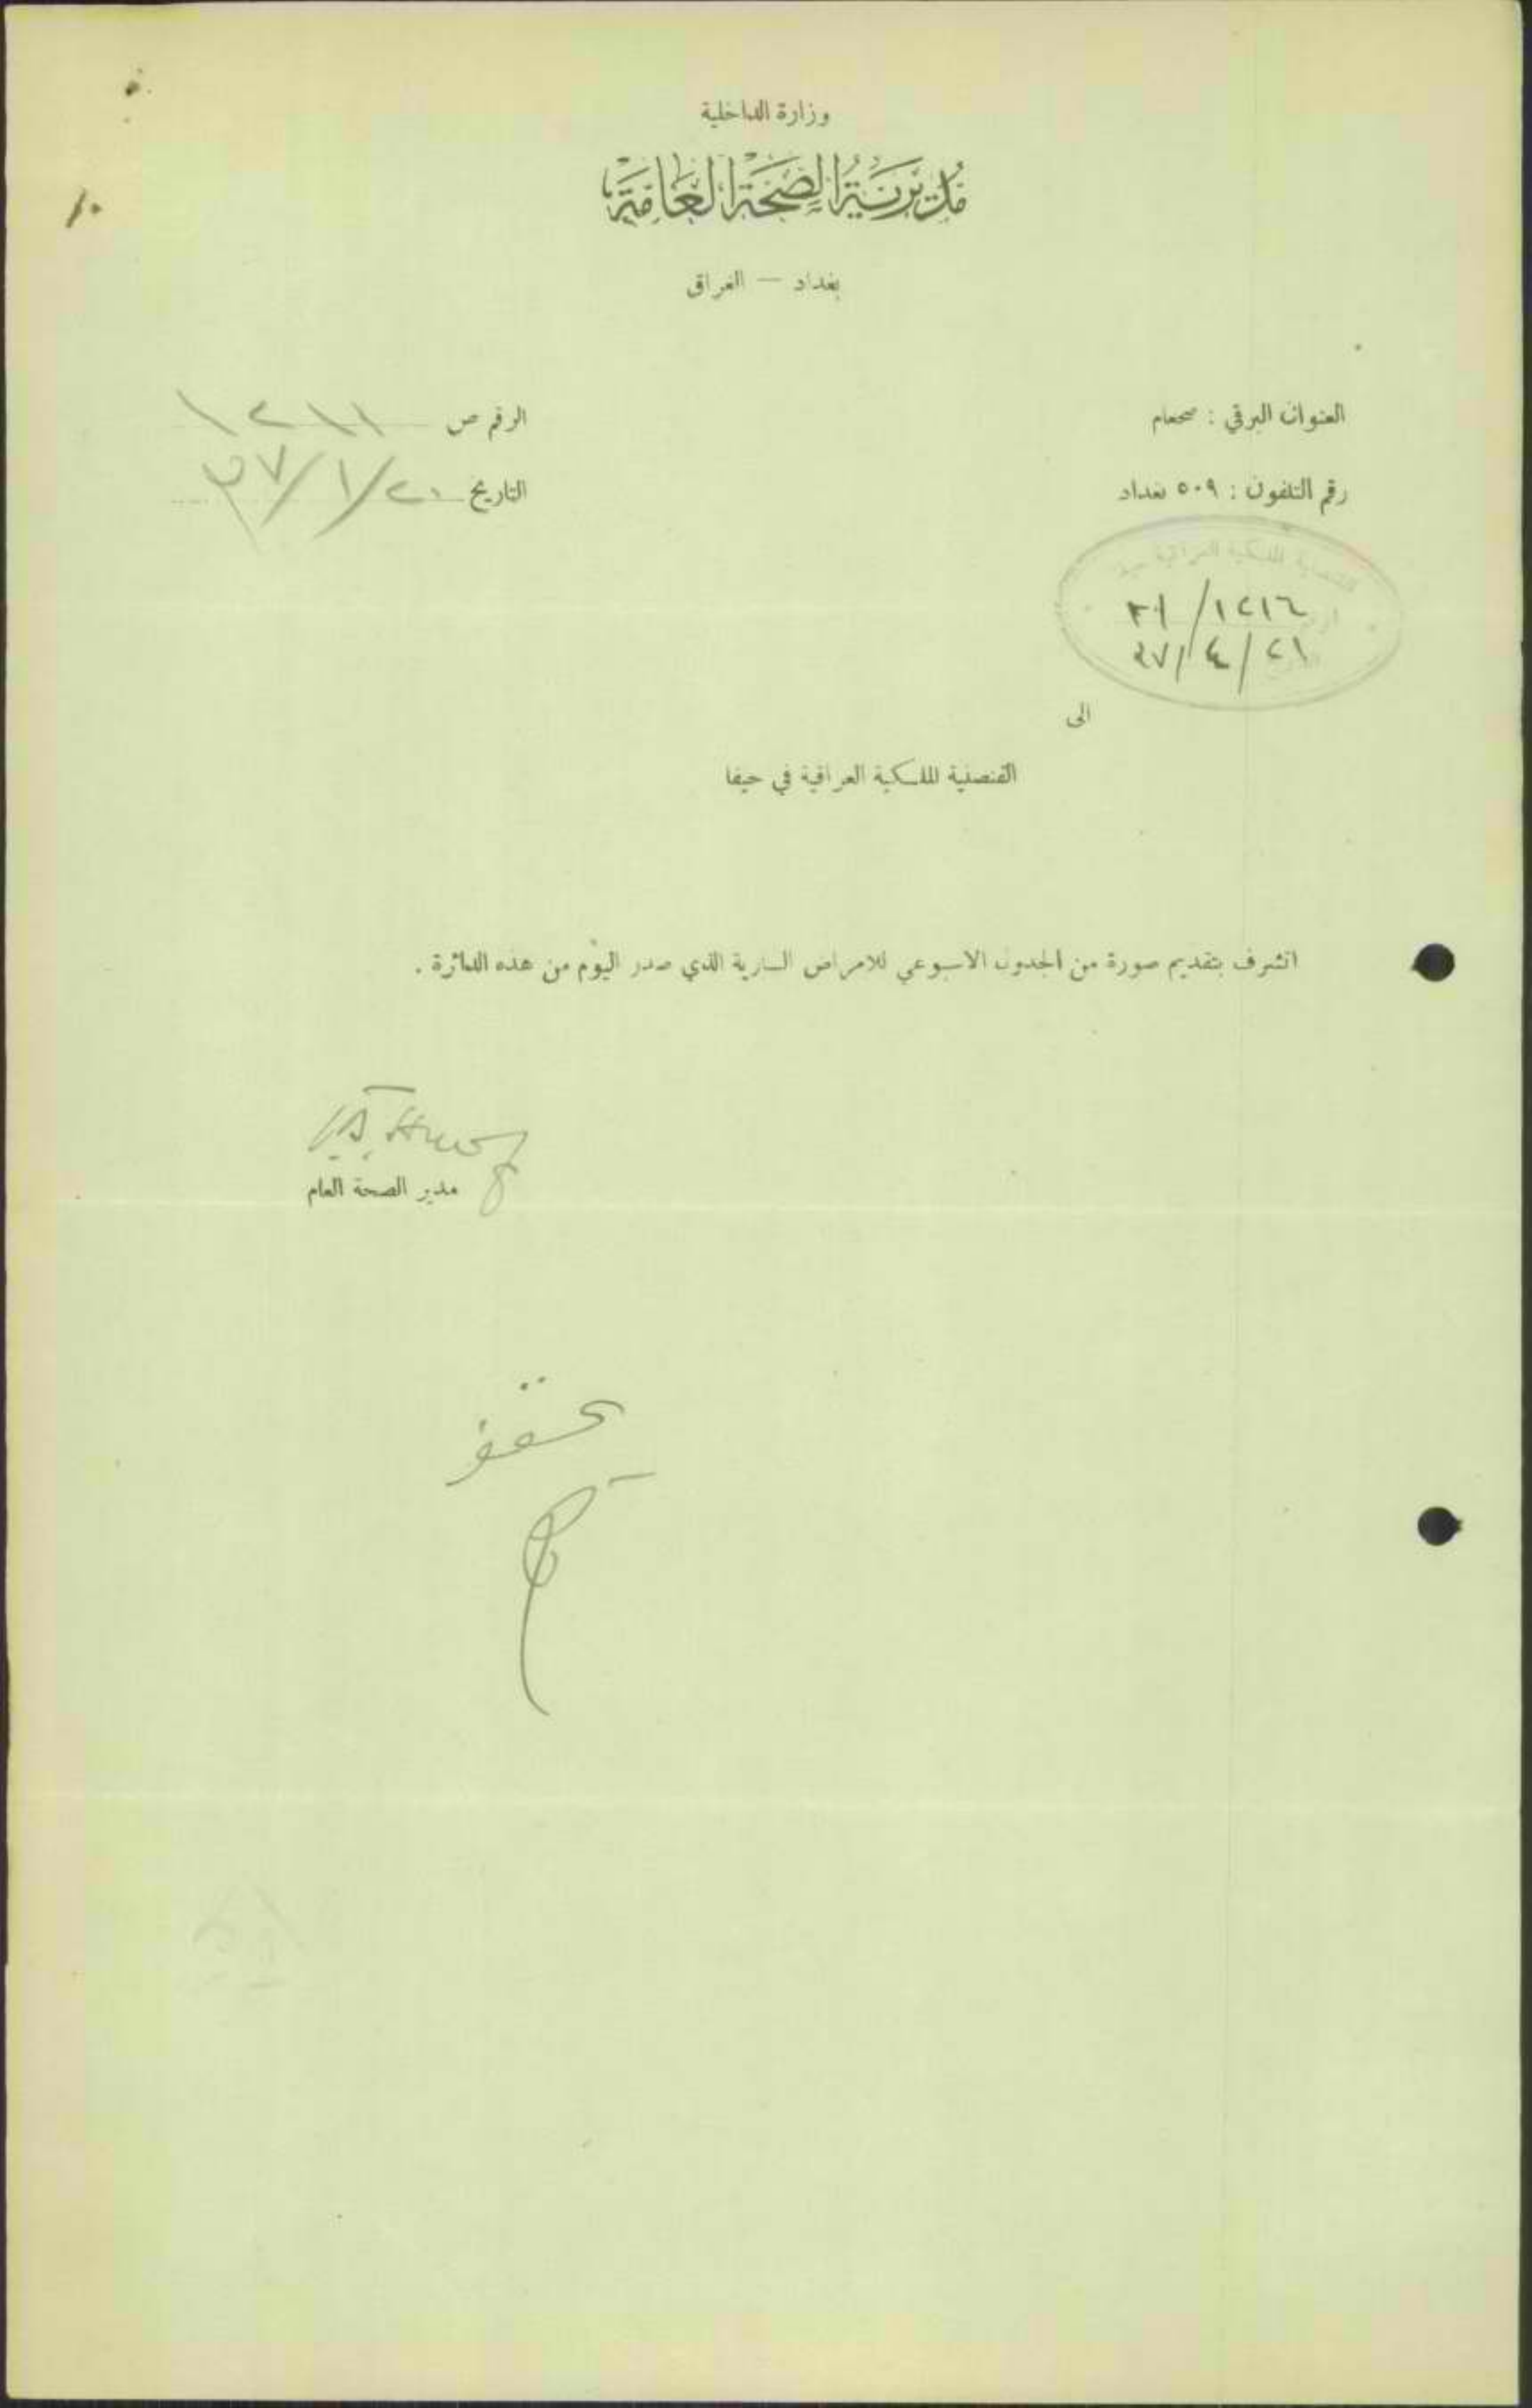 وزارة الداخلية
مديرية الصحة العامة
بغداد — العراق
العنوان البرقي : صحعام
الرقم ص ١٢١١
رقم التلفون : ٥٠٩ بغداد
التاريخ ٢٠/١/٣٧
القنصلية الملكية العراقية
١٢١٦/٣١
٢١/٤/٣٧
الى
القنصلية الملكية العراقية في حيفا
اتشرف بتقديم صورة من الجدول الاسبوعي للامراض السارية الذي صدر اليوم من هذه الدائرة .
مدير الصحة العام
تحفظ
١٠